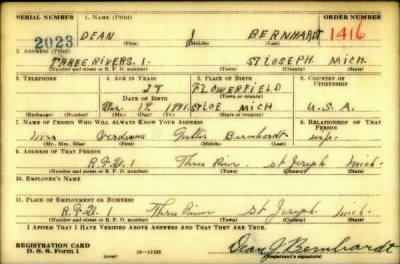 SERIAL NUMBER 1. NAME (Print) ORDER NUMBER
2023 DEAN J BERNHARDT 1416
(First) (Last)
2. ADDRESS (Print)
THREE RIVERS. 1. ST JOSEPH MICH.
(Number and street or R. F. D. number) (Town) (County) (State)
3. TELEPHONE 4. AGE IN YEARS 5. PLACE OF BIRTH 6. COUNTRY OF CITIZENSHIP
29 FLOWERFIELD
DATE OF BIRTH (Town or county)
18 1911 ST JOE MICH U.S.A.
(Exchange) (Number) (Mo.) (Day) (Yr.) (State or country)
7. NAME OF PERSON WHO WILL ALWAYS KNOW YOUR ADDRESS 8. RELATIONSHIP OF THAT PERSON
Mrs Bernhardt wife
(Mr., Mrs., Miss) (First) (Middle) (Last)
9. ADDRESS OF THAT PERSON
R.F.D. 1 Three Rivers St Joseph Mich.
(Number and street or R. F. D. number) (Town) (County) (State)
10. EMPLOYER'S NAME
11. PLACE OF EMPLOYMENT OR BUSINESS
Three Rivers St Joseph Mich.
(Number and street or R. F. D. number) (Town) (County) (State)
I AFFIRM THAT I HAVE VERIFIED ABOVE ANSWERS AND THAT THEY ARE TRUE.
REGISTRATION CARD
D. S. S. Form 1 Dean J Bernhardt
(over) (Registrant's signature)